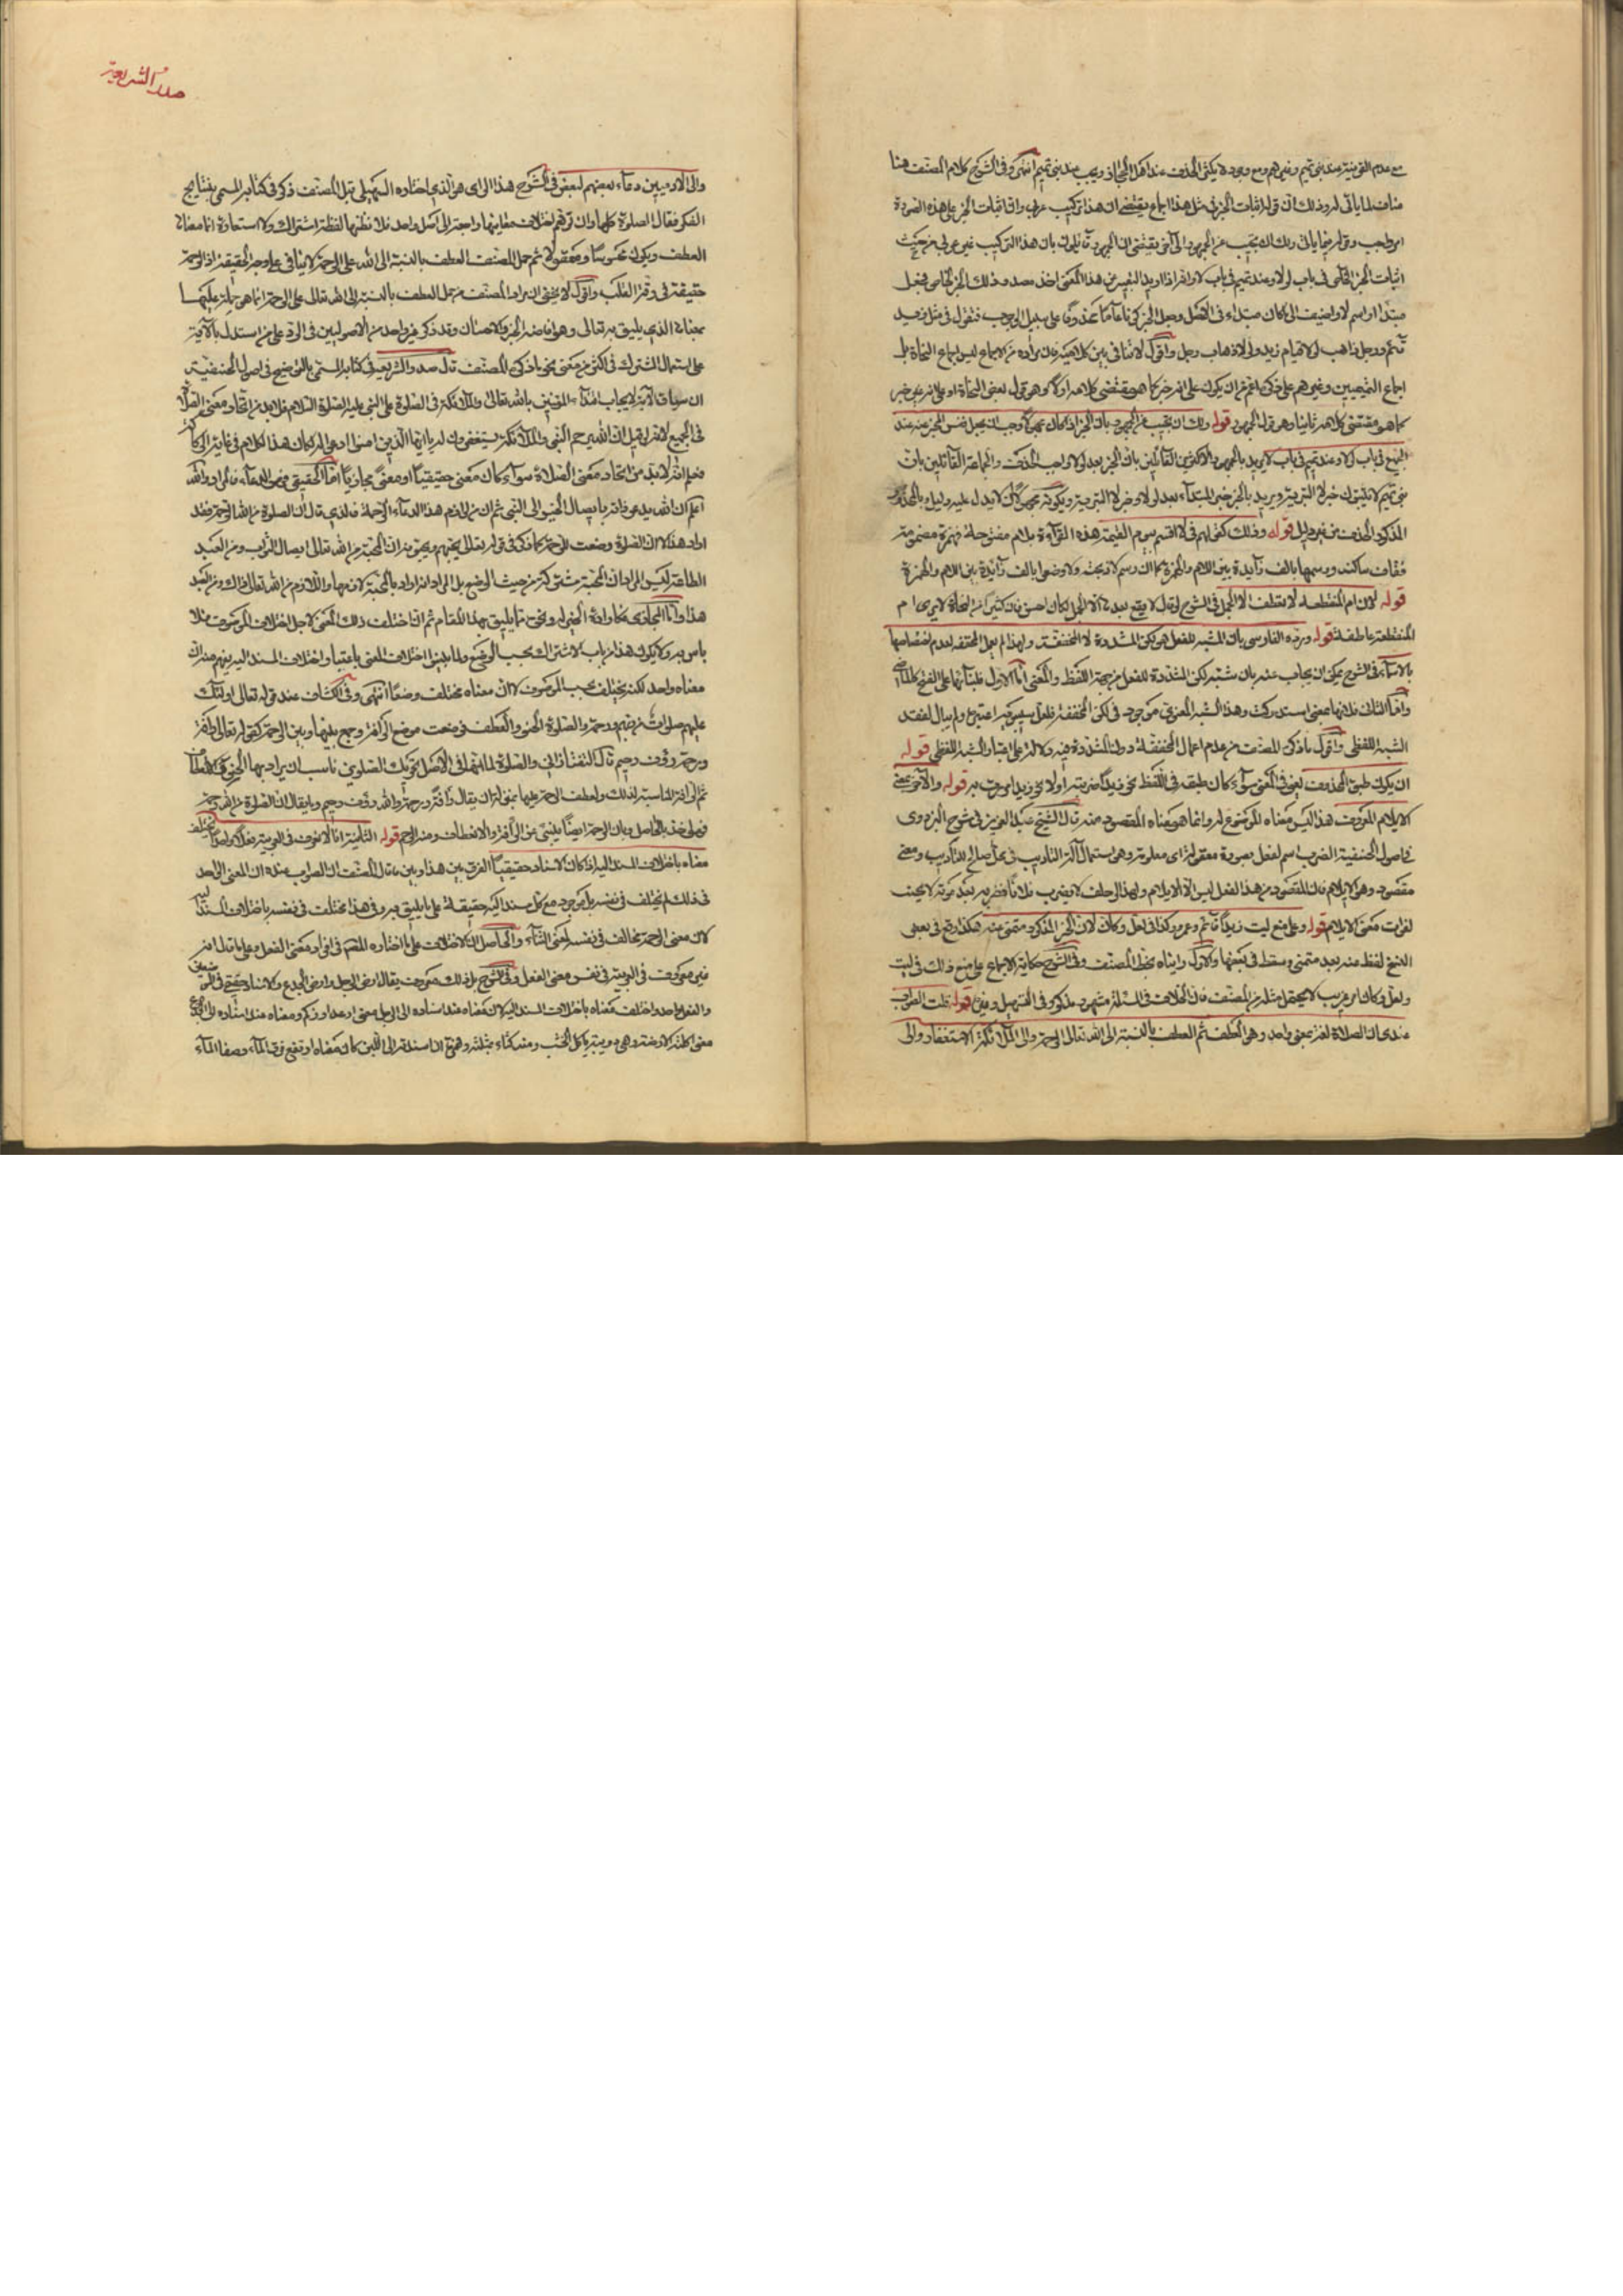 مع عدم القرينة عند بني تميم وغيرهم ومع وجودها يكثر الحذف عند اهل الحجاز ويجب عند بني تميم انتهى وفي الشرح كلام المصنف هنا
مناف لما يأتي له وذلك ان قوله اثبات الخبر في مثل هذا اجماع يقتضي ان هذا تركيب عربي وان اثبات الخبر على هذه الصورة
امر واجب وقوله فيما يأتي ولك ان تجيب عن الجمهور الى آخره يقتضي ان الجمهور قائلون بان هذا التركيب غير عربي من حيث
اثبات الخبر الخاص في باب لولا وعند تميم في باب لا وانه اذا اريد التعبير عن هذا المعنى اخذ مصدر ذلك الخبر الخاص فجعل
مبتدا او اسم لا واضيف الى ما كان مبتداء في الاصل وجعل الخبر كونا عاما محذوفا على سبيل الوجوب فنقول في مثل لولا زيد
قائم ولا رجل ذاهب لولا قيام زيد ولا ذهاب رجل واقول لا تنافي بين كلاميه فان مراده من الاجماع ليس اجماع النحاة بل
اجماع التميميين وغيرهم على ذكره اعم من ان يكون على انه خبر كما هو مقتضى كلامه اولا وهو قول لبعض النحاة او على انه غير خبر
كما هو مقتضى كلامه ثانيا وهو قول الجمهور قوله ولك ان تجيب عن الجمهور بان الخبر اذا كان مجهولا وجب ان يجعل نفس المخبر عنه عند
الجميع في باب لولا وعند تميم في باب لا يريد بالجمهور الاكثرين القائلين بان الخبر بعد لولا واجب الحذف والجماعة القائلين بان
بني تميم لا تثبت خبر لا التبرئة ويريد بالخبر خبر المبتداء بعد لولا وخبر لا التبرئة وبكونه مجهولا ان لا يدل عليه دليل وبالمحذور
المذكور الحذف من غير دليل قوله وذلك كقولهم في لا اقسم بيوم القيمة هذه القراءة بلام مفتوحة فهمزة مضمومة
فقاف ساكنة ورسمها بالف زائدة بين اللام والهمزة
قوله لان ام المنقطعة لا تعطف الا الجمل في الشرح لو قال لا يقع بعدها الا الجمل لكان احسن فان كثيرا من النحاة لا يرى ام
المنقطعة عاطفة قوله ورده الفارسي بان المشبه للفعل هو لكن المشددة لا المخففة ولهذا لم تعمل المخففة لعدم اختصاصها
بالاسماء في الشرح يمكن ان يجاب عنه بان شبه لكن المشددة للفعل من جهة اللفظ والمعنى اما الاول فلبنائها على الفتح كالماضي
واما الثاني فلانها بمعنى استدركت وهذا الشبه المعنوي موجود في لكن المخففة فلعل سيبويه اعتبره ولم يبال لفقد
الشبه اللفظي واقول ما ذكره المصنف من عدم اعمال المخففة دون المشددة فيه دلالة على اعتبار الشبه اللفظي قوله
ان يكون طبق المحذوف يعني في المعنى سواء كان طبقه في اللفظ نحو زيدا ضربته أو لا نحو زيدا مررت به قوله والآخر بمعنى
الايلام المعروف هذا ليس معناه الموضوع له وانما هو معناه المقصود منه قال الشيخ عبد العزيز في شرح البزدوي
في اصول الحنفية الضرب اسم لفعل بصورة معقولة اي معلومة وهو استعمال آلة التاديب في محل صالح للتأديب ومعنى
مقصود وهو الايلام فان المقصود من هذا الفعل ليس الا الايلام ولهذا لو حلف لا يضرب فلانا فضربه بعد موته لا يحنث
لفوات معنى الايلام قوله وعلى منع ليت زيدا قائم وعمرو وكذا في لعل وكأن لان الخبر المذكور متمنى عنه هكذا وقع في بعض
النسخ لفظ عنه بعد متمنى وسقط في بعضها والاول رايناه بخط المصنف وفي الشرح حكاية الاجماع على منع ذلك في ليت
ولعل وكأن امر غريب لا يحتمل مثله من المصنف فان الخلاف في المسئلة مشهور مذكور في التسهيل وغيره قوله قلت الصواب
عندي ان الصلاة لغة بمعنى واحد وهو العطف ثم العطف بالنسبة الى الله تعالى الرحمة والى الملائكة الاستغفار والى
صدر الشريعة
والى الآدميين دعاء بعضهم لبعض في الشرح هذا الرأي هو الذي اختاره السهيلي قبل المصنف ذكره في كتابه المسمى بنتايج
الفكر فقال الصلوة كلها وان توهم اختلاف معانيها راجعة الى اصل واحد فلا تظنها لفظة اشتراك ولا استعارة انما معناها
العطف ويكون محسوسا ومعقولا ثم حمل المصنف العطف بالنسبة الى الله على الرحمة لا ينافي على وجه الحقيقة اذ الرحمة
حقيقة في رقة القلب واقول لا يخفى ان مراد المصنف من حمل العطف بالنسبة الى الله تعالى على الرحمة انما هو حمله عليها
بمعناها الذي يليق به تعالى وهو افاضة الخير والاحسان وقد ذكر غير واحد من الاصوليين في الرد على من استدل بالآية
على استعمال المشترك في اكثر من معنى نحو ما ذكره المصنف قال صدر الشريعة في كتابه المسمى بالتوضيح في اصول الحنفية
ان سياق الآية لايجاب اقتداء المؤمنين بالله تعالى والملائكة في الصلوة على النبي عليه الصلوة السلام فلا بد من اتحاد معنى الصلاة
في الجميع لانه لو قيل ان الله يرحم النبي والملائكة يستغفرون له يا ايها الذين امنوا ادعوا له لكان هذا الكلام في غاية الركاكة
فعلم انه لا بد من اتحاد معنى الصلاة سواء كان معنى حقيقيا او معنى مجازيا اما الحقيقي فهو الدعاء فالمراد والله
اعلم ان الله يدعو ذاته بايصال الخير الى النبي ثم ان من لوازم هذا الدعاء الرحمة فالذي قال ان الصلوة من الله الرحمة فقد
اراد هذا لا ان الصلوة وضعت للرحمة كما ذكر في قوله تعالى يحبهم ويحبونه ان المحبة من الله تعالى ايصال الثواب ومن العبد
الطاعة ليس المراد ان المحبة مشتركة من حيث الوضع بل المراد انه اراد بالمحبة لازمها واللازم من الله تعالى ذاك ومن العبد
هذا واما المجازي فكارادة الخير ونحوه مما يليق بهذا المقام ثم ان اختلف ذلك المعنى لاجل اختلاف الموصوف فلا
باس به ولا يكون هذا من باب الاشتراك بحسب الوضع ولما بينوا اختلاف المعنى باعتبار اختلاف المسند اليه يفهم منه ان
معناه واحد لكنه يختلف بحسب الموصوف لا ان معناه مختلف وضعا انتهى وفي الكشاف عند قوله تعالى اولئك
عليهم صلوات من ربهم ورحمة والصلوة الحنو والعطف فوضعت موضع الرافة وجمع بينها وبين الرحمة كقوله تعالى رافة
ورحمة رؤوف رحيم قال التفتازاني والصلوة لما انها في الاصل تحريك الصلوين ناسب ان يراد بها الحنو
معناه باختلاف المسند اليه اذا كان الاسناد حقيقيا الفرق بين هذا وبين ما قال المصنف انه الصواب عنده ان المعنى الواحد
في ذلك لم يختلف في نفسه بل موجود مع كل مسند اليه حقيقة على ما يليق به وفي هذا يختلف في نفسه باختلاف المسند اليه
لان معنى الرحمة يخالف في نفسه لمعنى الثناء والحاصل ان الاختلاف على ما اختاره المصنف في افراد معنى الفعل وعلى ما قال انه
غير معروف في العربية في نفس معنى الفعل وفي الشرح بل ذلك معروف يقال ارض الرجل وارض الجذع والاسناد حقيقي في الموضعين
والفعل واحد واختلف معناه باختلاف المسند اليه لان معناه عند اسناده الى الرجل بمعنى ارعد او زكم ومعناه عند اسناده الى الجذع
معنى اكلته الارضة وهي دويبة تاكل الخشب ومنه كثاء بمثلثة وهمزة ان اسندته الى اللبن كان معناه ارتفع فوق الماء وصفا الماء